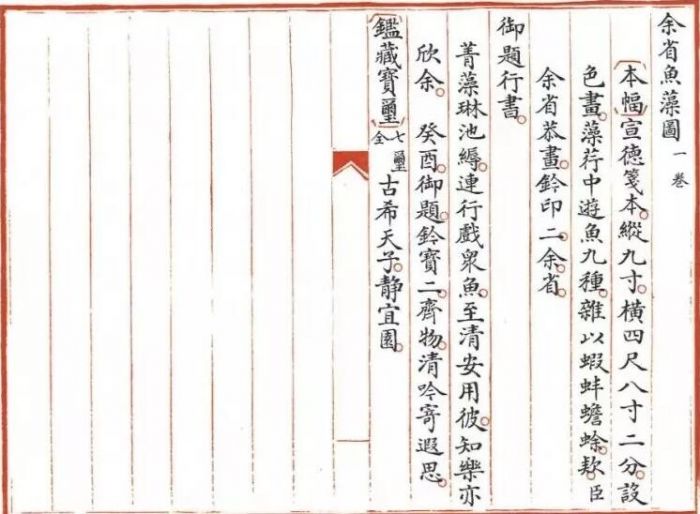 余省魚藻圖 一卷
本幅宣德箋本縱九寸橫四尺八寸二分設
色畫藻荇中遊魚九種雜以蝦蚌蟾蜍款臣
余省恭畫鈐印二余省
御題行書
菁藻琳池縟連行戲衆魚至清安用彼知樂亦
欣余 癸酉御題鈐寶二齊物清吟寄遐思
鑑藏寶璽 七璽全 古希天子靜宜園